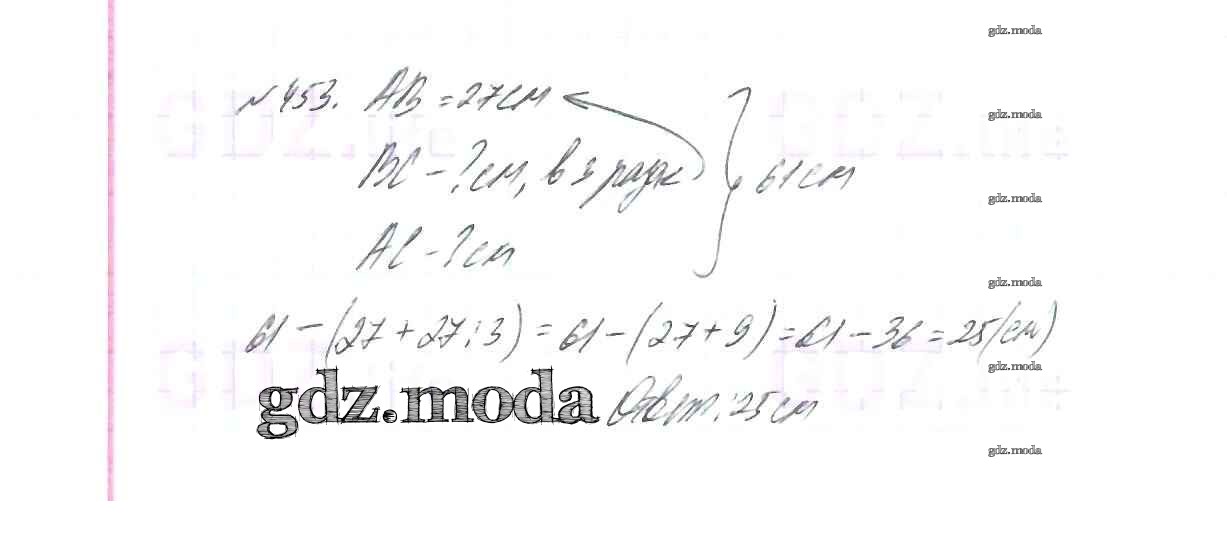 gdz.moda
№ 453. AB = 27 см
gdz.moda
BC - ? см, в 3 раза < 61 см
gdz.moda
AC - ? см
gdz.moda
61 - (27 + 27 : 3) = 61 - (27 + 9) = 61 - 36 = 25 (см)
gdz.moda
gdz.moda Ответ: 25 см
gdz.moda